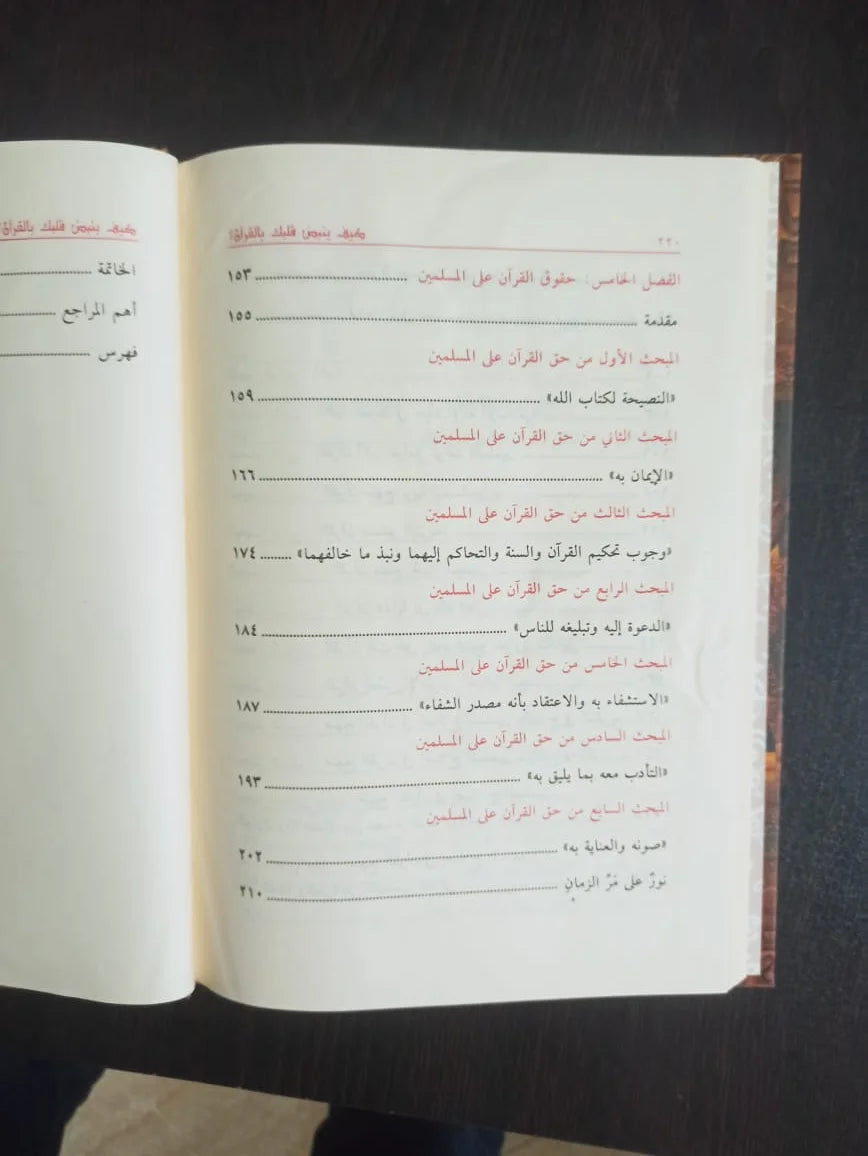 ٢٢٠ كيف ينبض قلبك بالقرآن؟
الفصل الخامس: حقوق القرآن على المسلمين ........ ١٥٣
مقدمة ........ ١٥٥
المبحث الأول من حق القرآن على المسلمين
«النصيحة لكتاب الله» ........ ١٥٩
المبحث الثاني من حق القرآن على المسلمين
«الإيمان به» ........ ١٦٦
المبحث الثالث من حق القرآن على المسلمين
«وجوب تحكيم القرآن والسنة والتحاكم إليهما ونبذ ما خالفهما» ........ ١٧٤
المبحث الرابع من حق القرآن على المسلمين
«الدعوة إليه وتبليغه للناس» ........ ١٨٤
المبحث الخامس من حق القرآن على المسلمين
«الاستشفاء به والاعتقاد بأنه مصدر الشفاء» ........ ١٨٧
المبحث السادس من حق القرآن على المسلمين
«التأدب معه بما يليق به» ........ ١٩٣
المبحث السابع من حق القرآن على المسلمين
«صونه والعناية به» ........ ٢٠٢
نورٌ على مَرِّ الزمانِ ........ ٢١٠
كيف ينبض قلبك بالقرآن؟
الخاتمة ........
أهم المراجع ........
فهرس ........